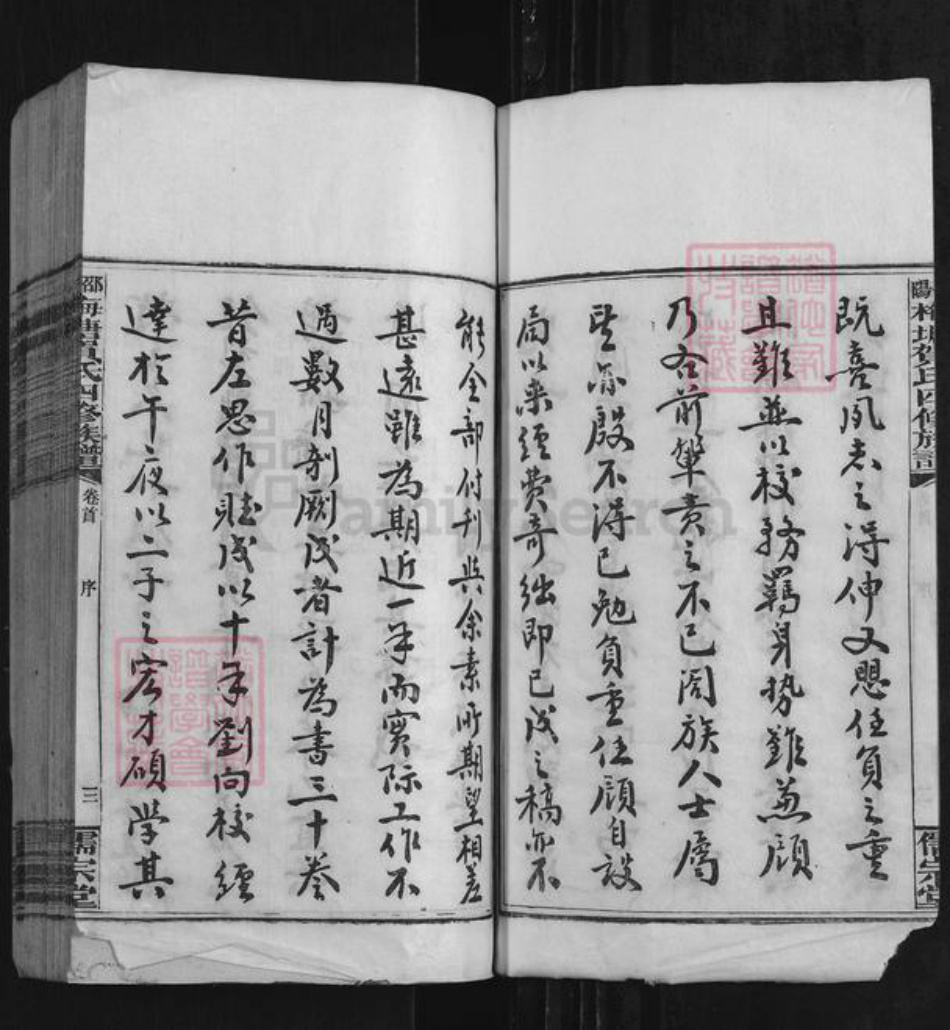 既喜夙志之得伸又懸任負之重
且難並以校務羈身勢難兼顧
乃各前輩責之不已闔族人士屬
望亦殷不得已勉負重任顧自設
局以來經費奇絀即已成之稿亦不
能全部付刊與余素所期望相差
甚遠雖為期近一年而實際工作不
過數月剞劂成者計為書三十卷
昔左思作賦成以十年劉向校經
達於午夜以二子之宏才碩學其
梅塘賀氏四修族譜
卷首
序
三
儒宗堂
FamilySearch